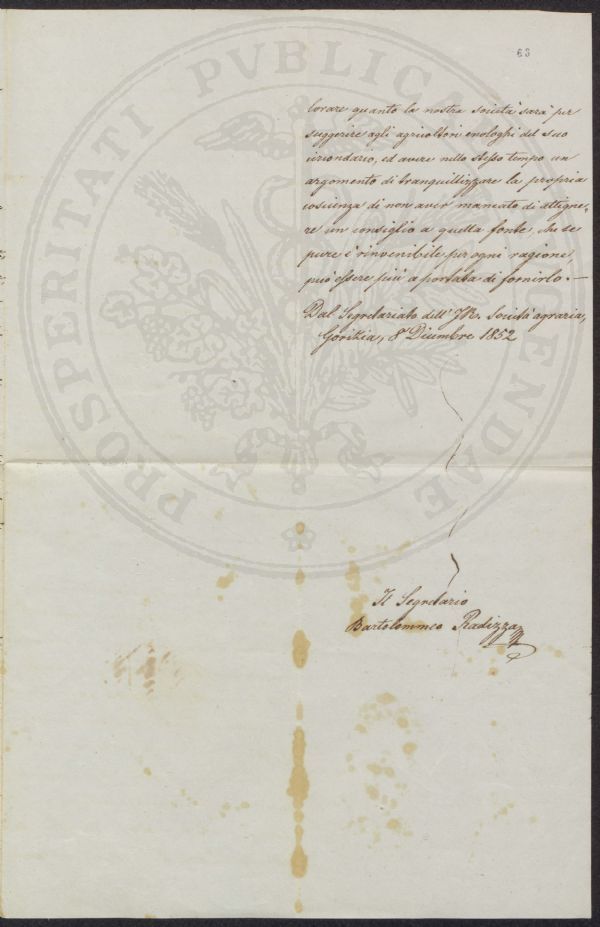 63
lorare quanto la nostra società sarà per
suggerire agli agricoltori enologhi del suo
circondario, ed avere nello stesso tempo un
argomento di tranquillizzare la propria
coscienza di non aver mancato di attigne,
re un consiglio a quella fonte, che se
pure è rinvenibile per ogni ragione,
può essere più a portata di fornirlo. —
Dal Segretariato dell' I.R. Società agraria,
Gorizia, 8 Dicembre 1852
Il Segretario
Bartolommeo Radizza
PROSPERITATI PVBLICAE AVGENDAE